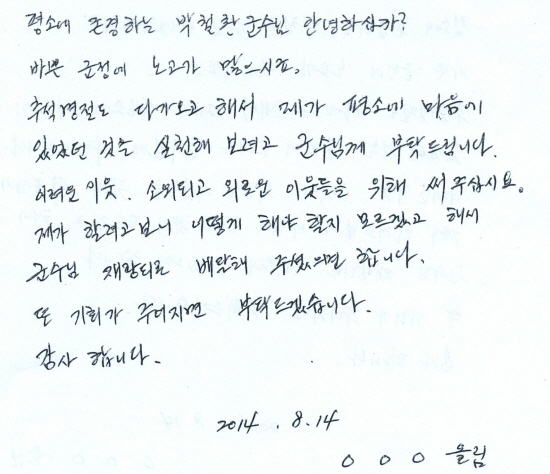 평소에 존경하는 박철환 군수님 안녕하십니까?
바쁜 군정에 노고가 많으시죠.
추석명절도 다가오고 해서 제가 평소에 마음에
있었던 것을 실천해 보려고 군수님께 부탁드립니다.
어려운 이웃. 소외되고 외로운 이웃들을 위해 써 주십시요.
제가 할려고보니 어떻게 해야 할지 모르겠고 해서
군수님 재량되로 배달해 주셨으면 합니다.
또 기회가 주어지면 부탁드리겠습니다.
감사 합니다.
2014. 8. 14
ㅇ ㅇ ㅇ 올림